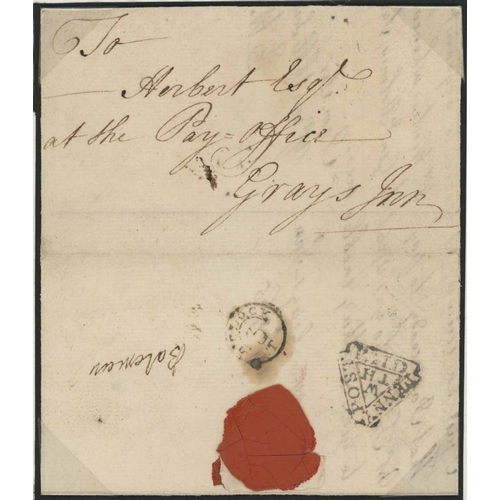 To
Herbert Esqr.
at the Pay=office
Grays Inn
PENNY
POST
W
TH